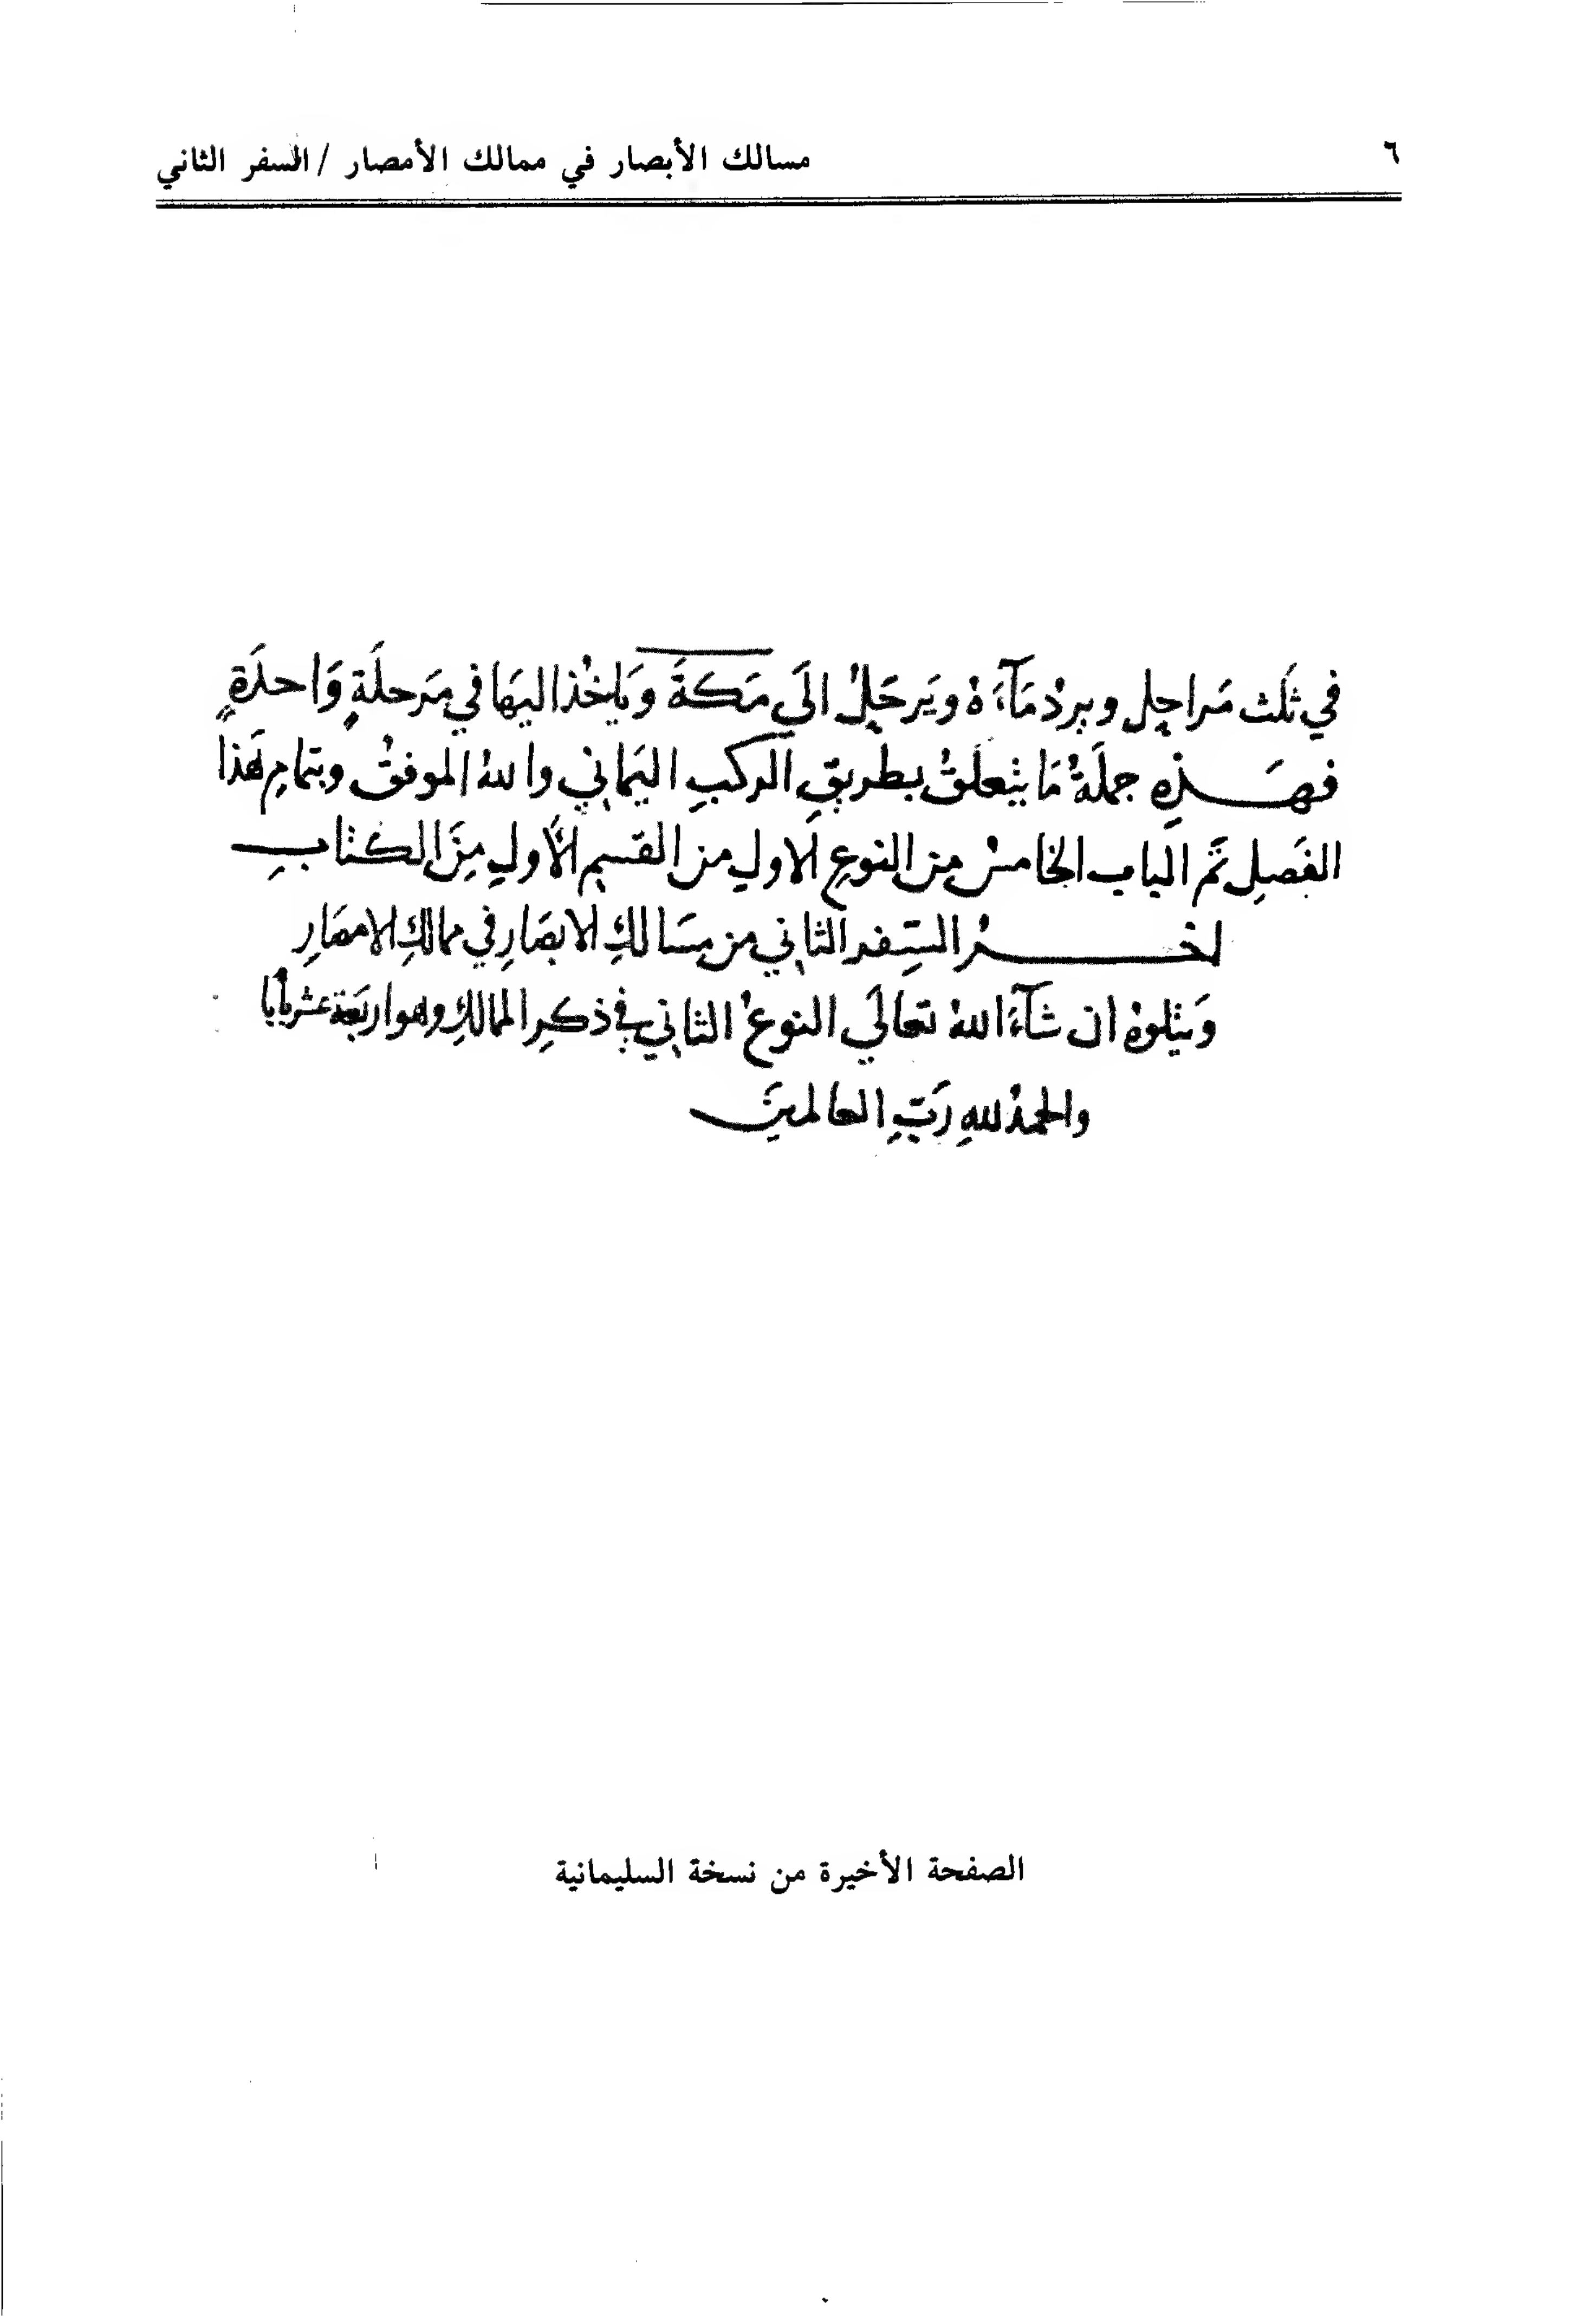 ٦
مسالك الأبصار في ممالك الأمصار / السفر الثاني
في ثلث مَراحِلِ وبردُ مَآءَهُ ويَرحَلُ الَى مَكةَ وَياخُذ اليهَا في مَرحلَةٍ وَاحدَةٍ
فهَذِهِ جملَةُ مَا يتعلَقُ بطريقِ الركبِ اليمَاني والله الموفقُ وبتمامِ هَذا
الفَصلِ تَم الباب الخامسُ من النوعِ الاول من القسمِ الأول مِنَ الكتابِ
اخرُ السِفر الثاني من مسَالكِ الابصَارِ في ممالكِ الامصَارِ
وَيتلوهُ ان شآءَ اللهُ تعَالَي النوعُ الثاني في ذكرِ الممالكِ وهو اربعَة عشر بابًا
والحمدُ للهِ رَبِّ العالمينَ
الصفحة الأخيرة من نسخة السليمانية